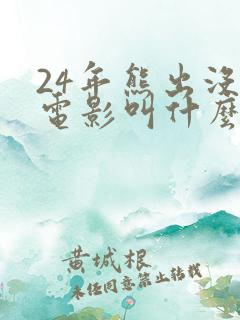 24年熊出没
電影叫什麼
黄城根
未经同意禁止转载